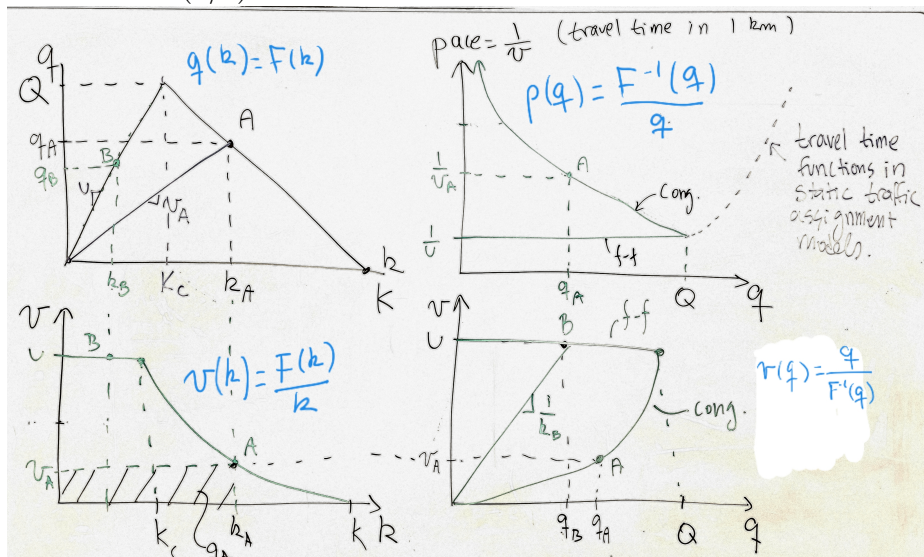 q
q(k) = F(k)
Q
A
q_A
B
q_B
u
v_A
k
k_B
K_c
k_A
K
pace = 1/v (travel time in 1 km)
p(q) = F⁻¹(q)/q
A
1/v_A
cong.
1/u
f-f
q_A
Q
q
travel time
functions in
static traffic
assignment
models.
v
u
B
v(k) = F(k)/k
A
v_A
k_c
k_A
K
k
q_A
v
u
B
f-f
1/k_B
cong.
v_A
A
q_B
q_A
Q
q
v(q) = q/F⁻¹(q)